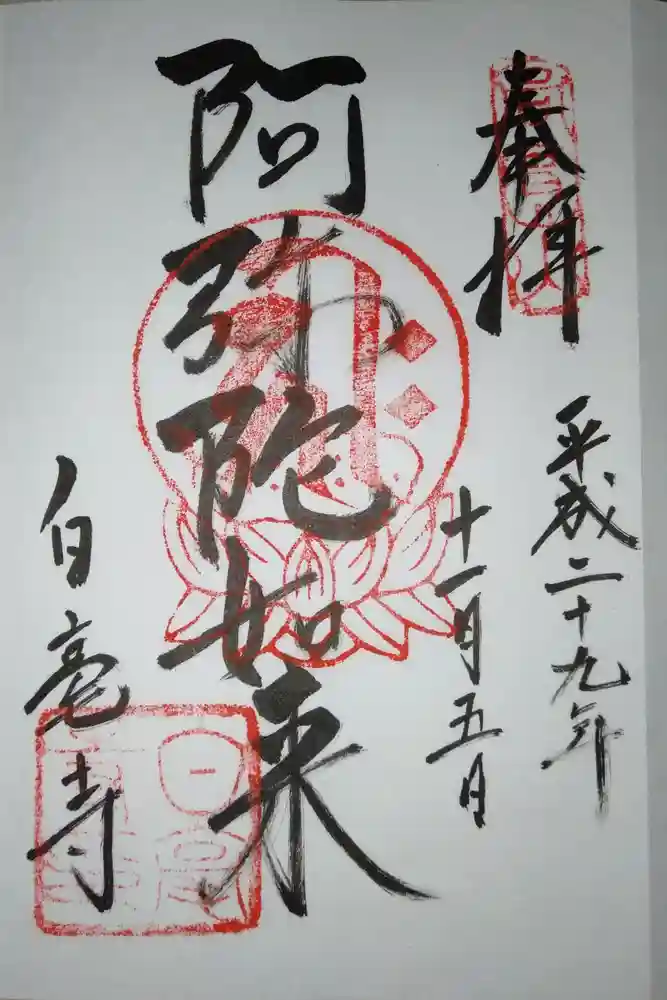 奉拝
平成二十九年
十一月五日
阿弥陀如来
白亳寺